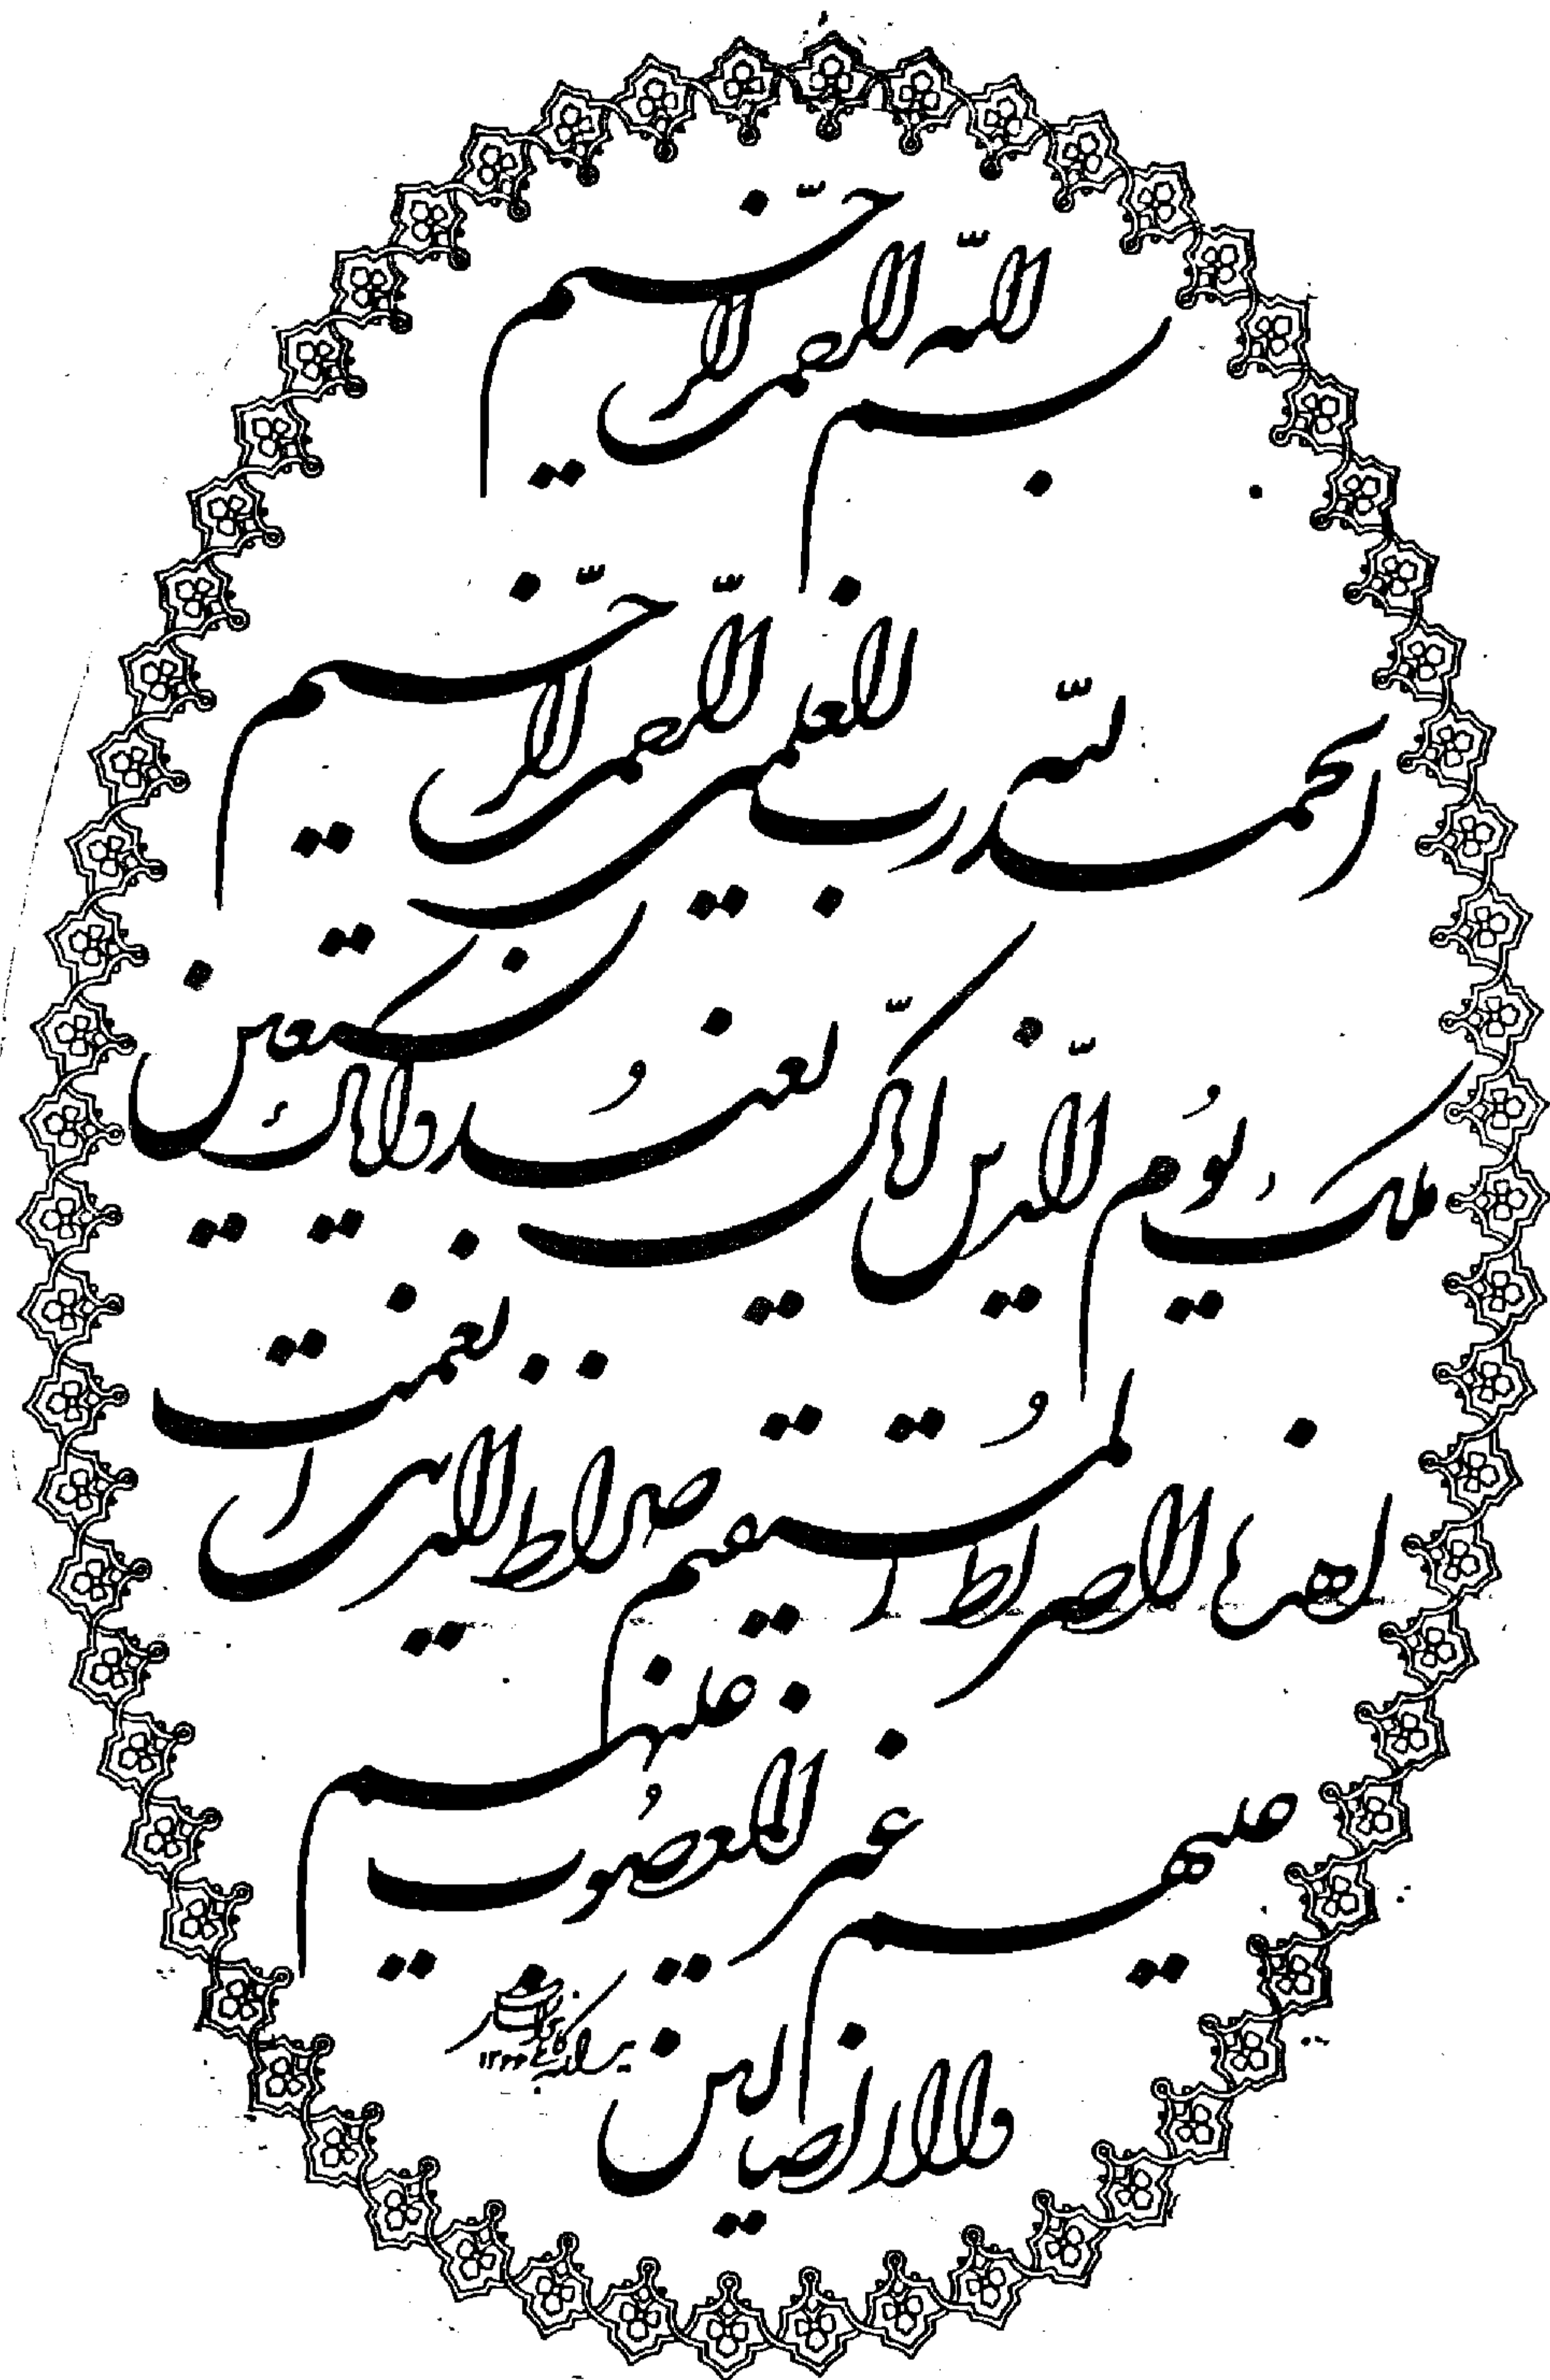 بسم الله الرحمن الرحیم
الحمد لله رب العلمین الرحمن الرحیم
ملک یوم الدین ایاک نعبد وایاک نستعین
اهدنا الصراط المستقیم صراط الذین انعمت
علیهم غیر المغضوب علیهم
ولا الضالین